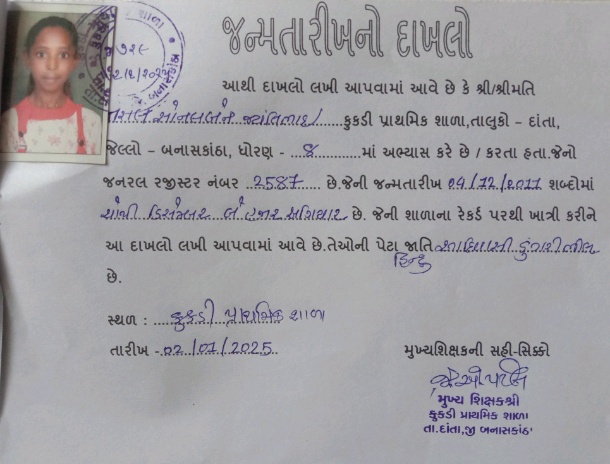 જન્મતારીખનો દાખલો
આથી દાખલો લખી આપવામાં આવે છે કે શ્રી/શ્રીમતિ
સોનલબેન જ્યંતિલાલ કુકડી પ્રાથમિક શાળા,તાલુકો – દાંતા,
જેલ્લો – બનાસકાંઠા, ધોરણ - ૪ માં અભ્યાસ કરે છે / કરતા હતા.જેનો
જનરલ રજીસ્ટર નંબર 2587 છે.જેની જન્મતારીખ 04/12/2011 શબ્દોમાં
ચોથી ડિસેમ્બર બે હજાર અગિયાર છે. જેની શાળાના રેકર્ડ પરથી ખાત્રી કરીને
આ દાખલો લખી આપવામાં આવે છે.તેઓની પેટા જાતિ હિન્દુ આદિવાસી ડુંગરી ભીલ
છે.
સ્થળ : કુકડી પ્રાથમિક શાળા
તારીખ - 02/01/2025
મુખ્યશિક્ષકની સહી-સિક્કો
મુખ્ય શિક્ષકશ્રી
કુકડી પ્રાથમિક શાળા
તા.દાંતા,જી બનાસકાંઠા